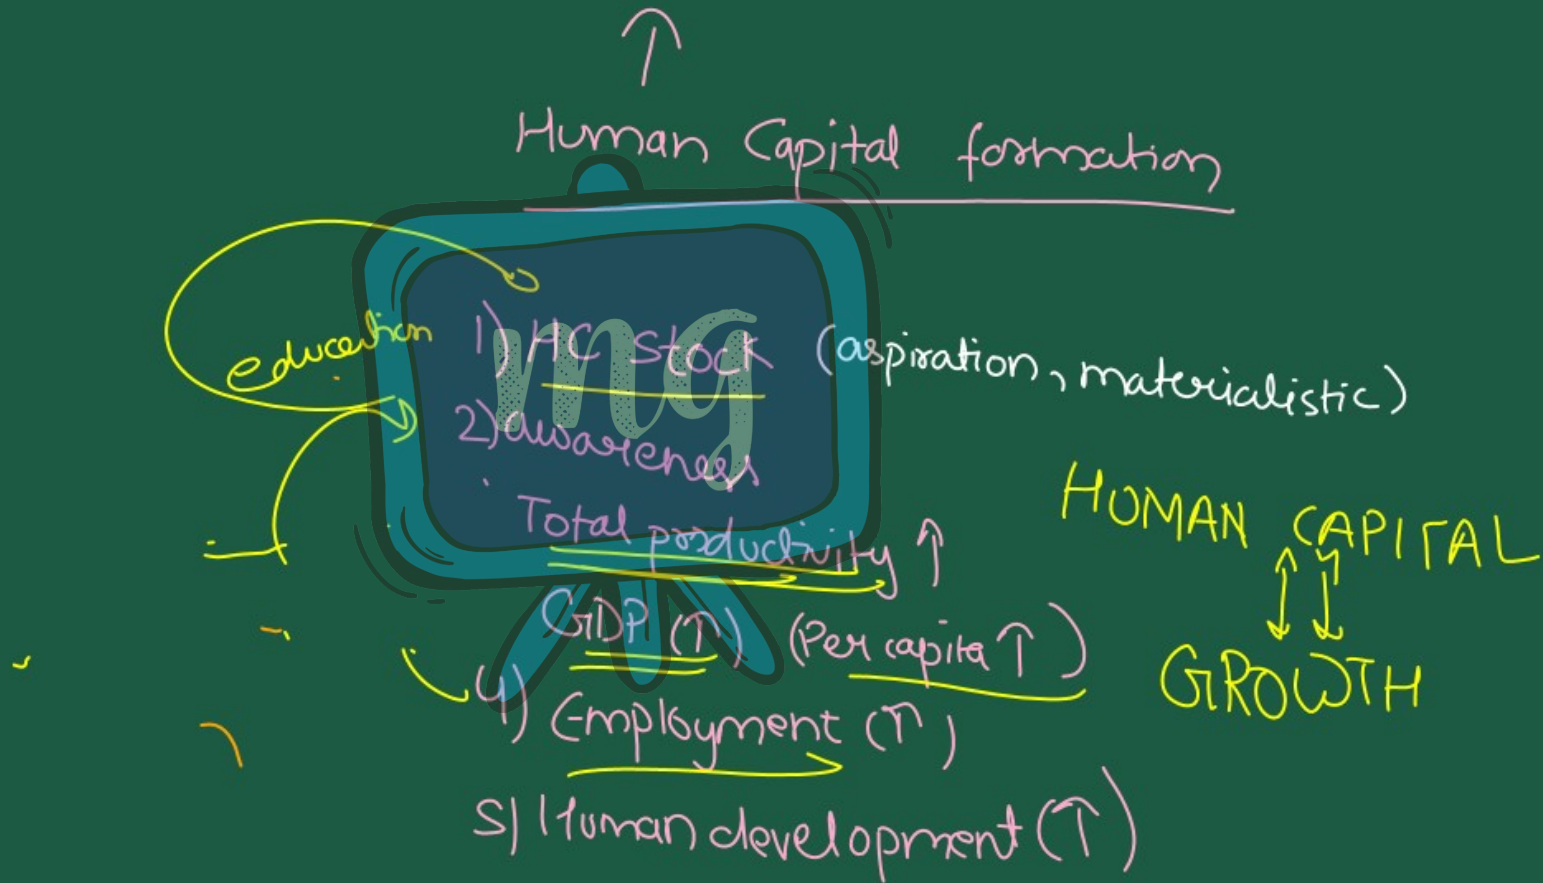 ↑
Human Capital formation
education
1) HC stock (aspiration, materialistic)
2) awareness
Total productivity ↑
GDP (↑) (Per capita ↑)
4) Employment (↑)
5) Human development (↑)
HUMAN CAPITAL
GROWTH
mg